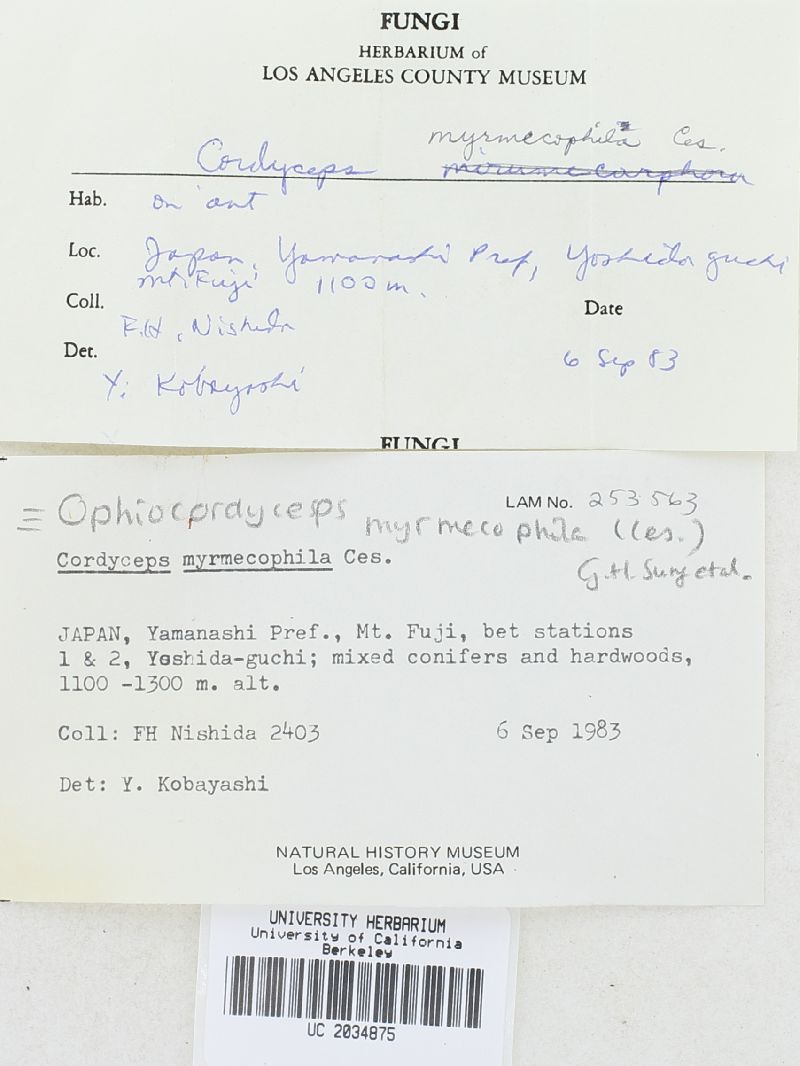 FUNGI
HERBARIUM of
LOS ANGELES COUNTY MUSEUM
myrmecophila Ces.
Cordyceps
Hab. on ant
Loc. Japan, Yamanashi Pref, Yoshida guchi
Mt. Fuji 1100 m.
Coll. F.H. Nishida
Date 6 Sep 83
Det. Y. Kobayashi
FUNGI
LAM No. 253563
≡ Ophiocordyceps myrmecophila (Ces.)
G.H. Sung et al.
Cordyceps myrmecophila Ces.
JAPAN, Yamanashi Pref., Mt. Fuji, bet stations
1 & 2, Yoshida-guchi; mixed conifers and hardwoods,
1100 -1300 m. alt.
Coll: FH Nishida 2403 6 Sep 1983
Det: Y. Kobayashi
NATURAL HISTORY MUSEUM
Los Angeles, California, USA
UNIVERSITY HERBARIUM
University of California
Berkeley
UC 2034875